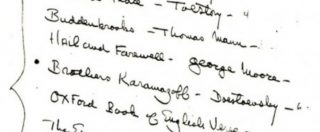 Peace - Tolstoy - "
Buddenbrooks - Thomas Mann -
Hail and Farewell - George Moore -
Brothers Karamazoff - Dostoevsky - "
Oxford Book of English Verse -
The